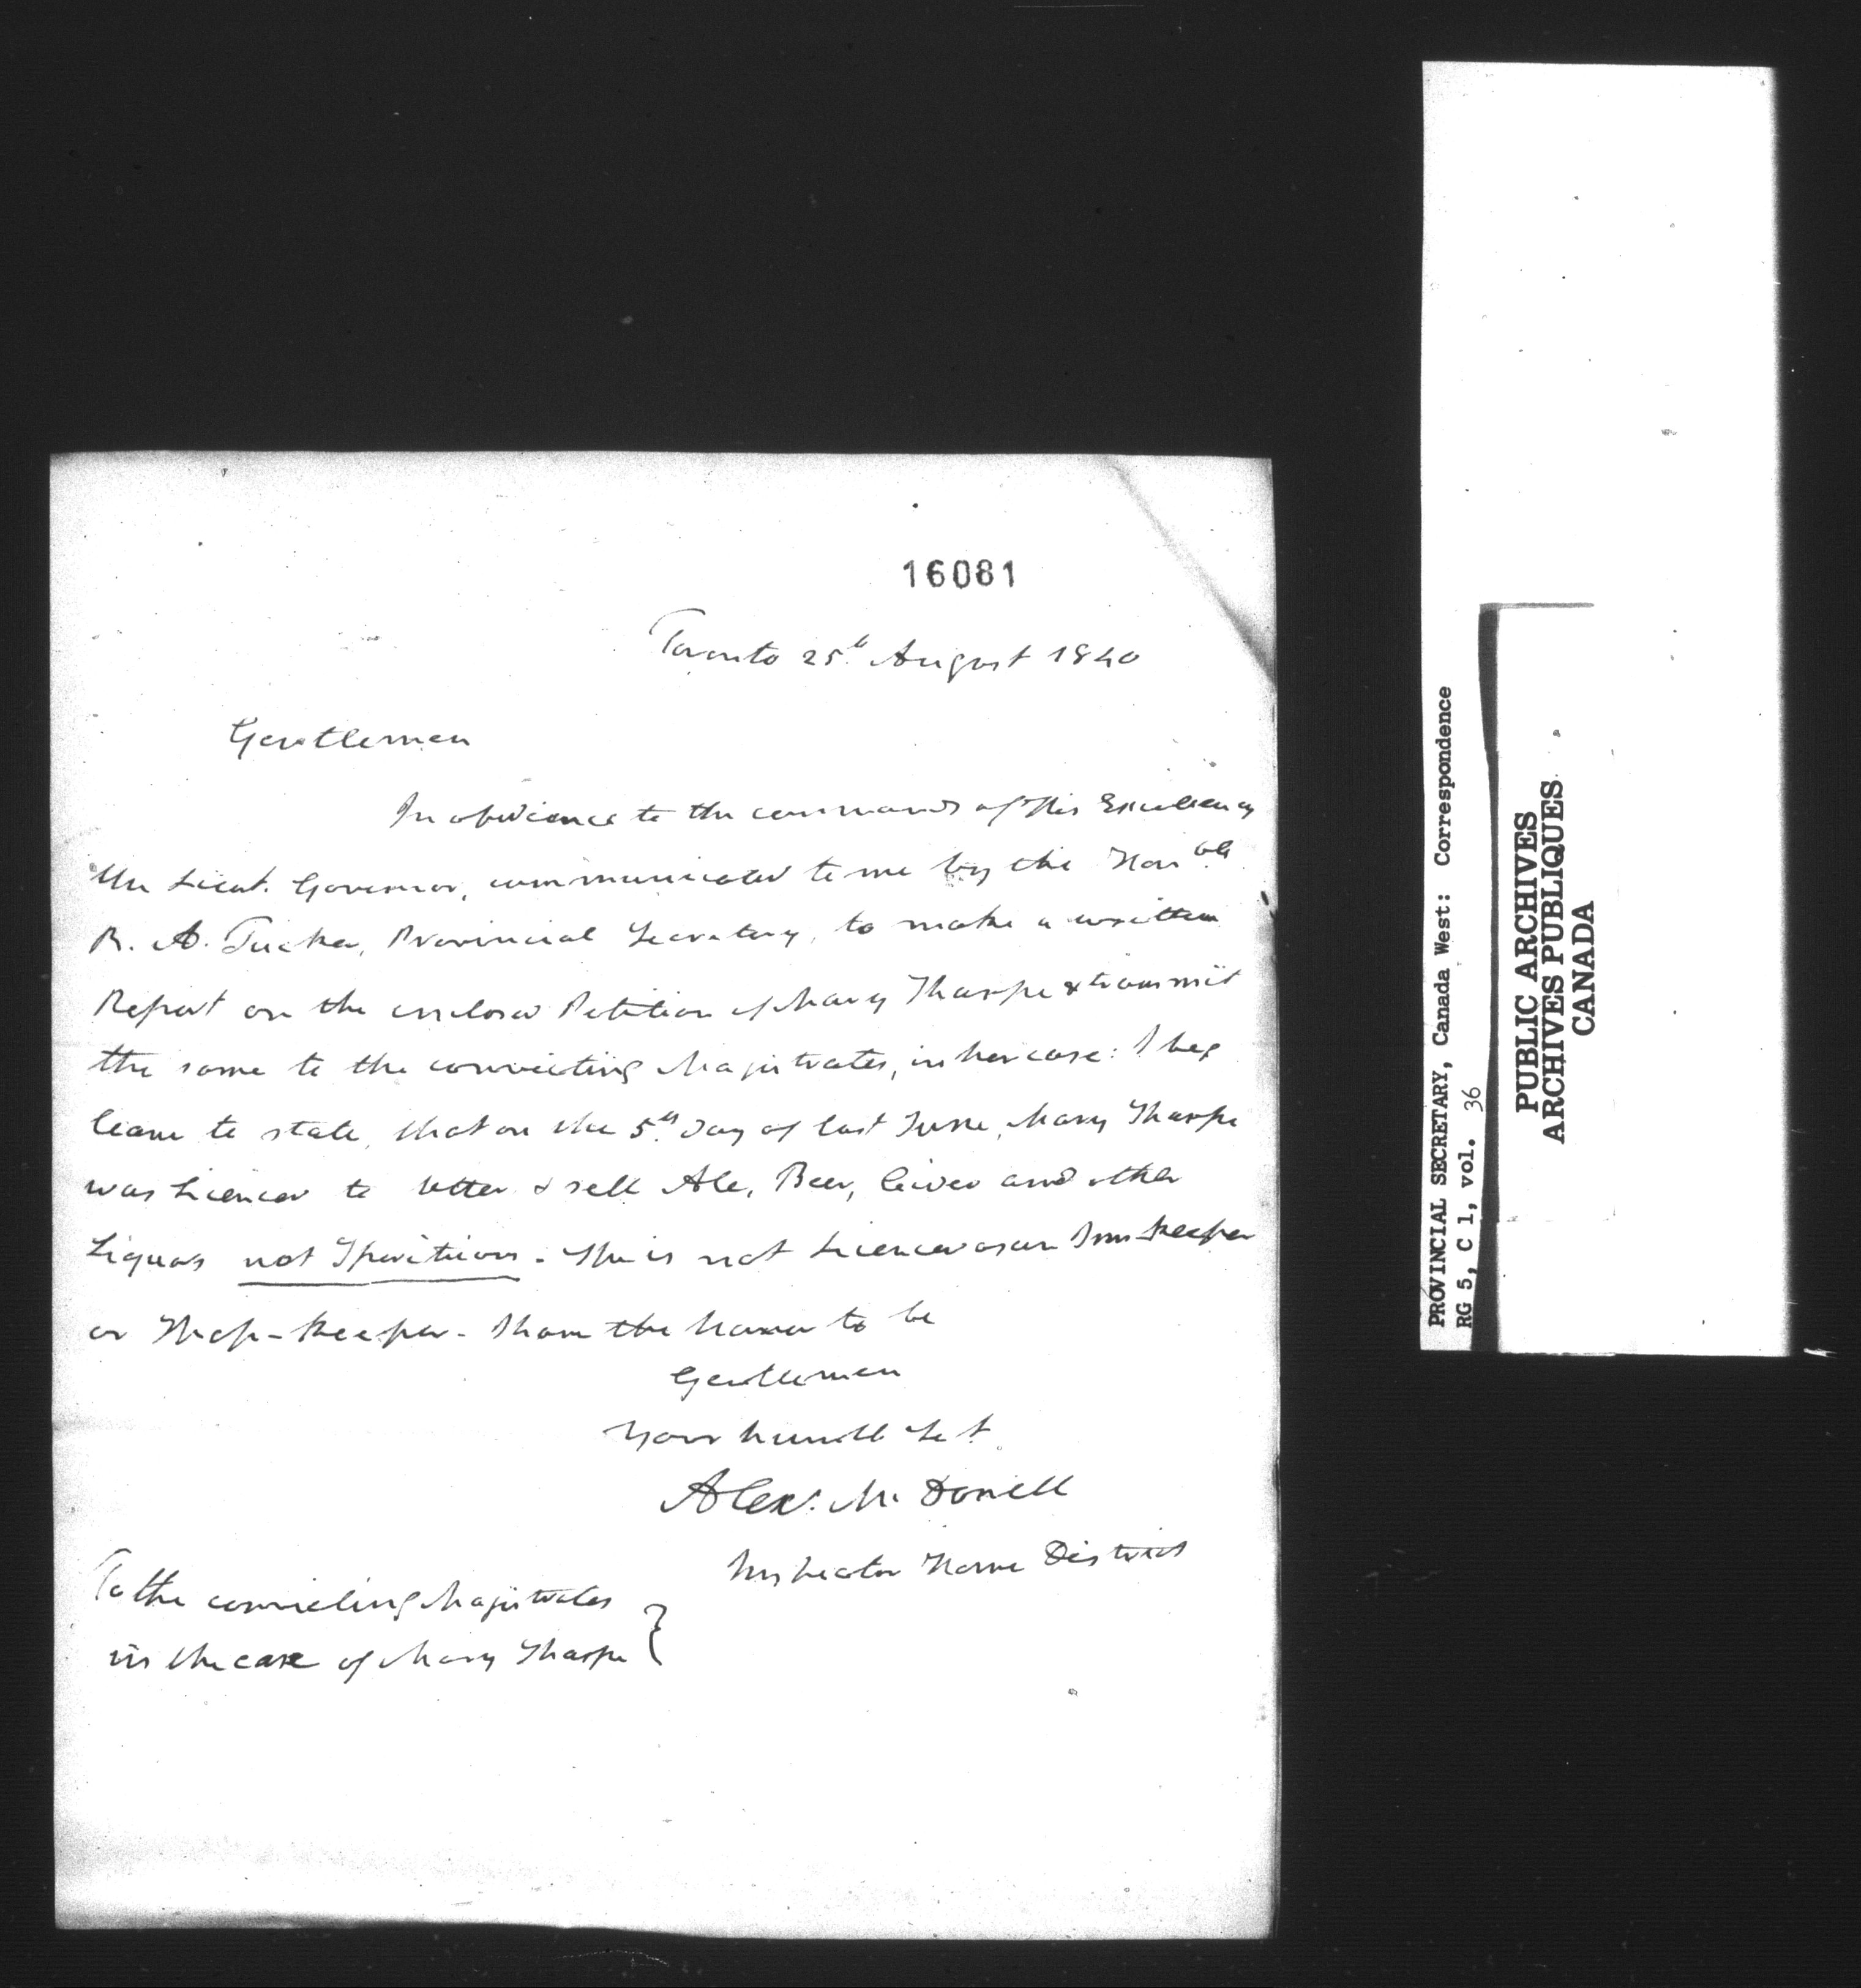 16081
Toronto 25th August 1840
Gentlemen
In obedience to the commands of His Excellency
the Lieut. Governor, communicated to me by the Honble
R. A. Tucker, Provincial Secretary, to make a written
Report on the enclosed Petition of Mary Tharpe & transmit
the same to the convicting Magistrates, in her case: I beg
leave to state, that on the 5th day of last June, Mary Tharpe
was Licenced to utter & sell Ale, Beer, Cider and other
Liquors not Spiritious. She is not Licenced as an Inn-keeper
or Shop-keeper. I have the honor to be
Gentlemen
Your humble Set
Alexr. McDonell
Inspector Home District
To the convicting Magistrates
in the case of Mary Tharpe }
PROVINCIAL SECRETARY, Canada West: Correspondence
RG 5, C 1, vol. 36
PUBLIC ARCHIVES
ARCHIVES PUBLIQUES
CANADA